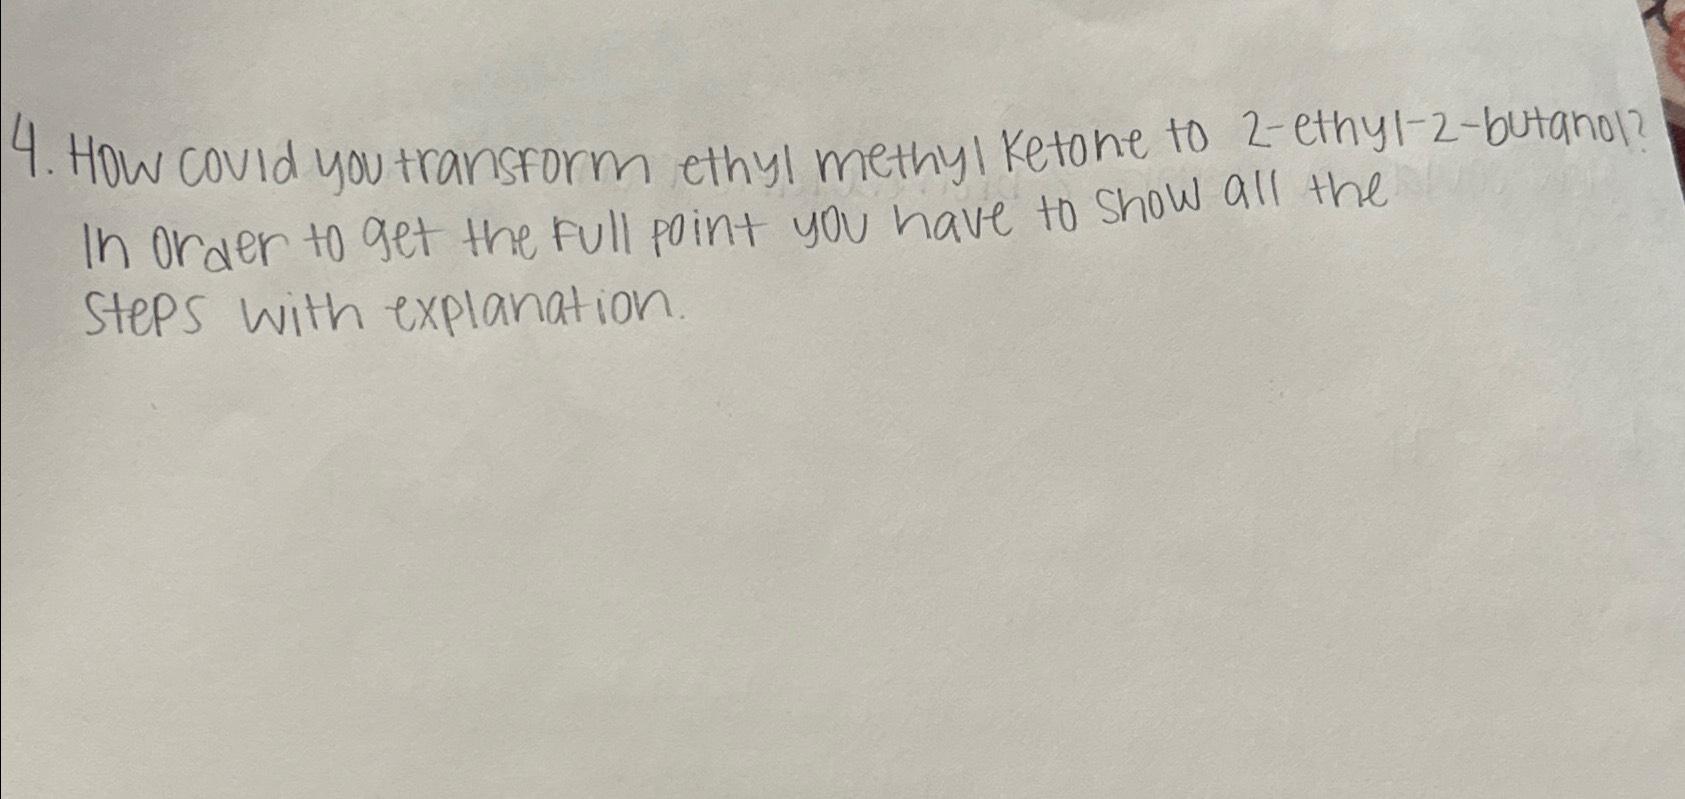 4. How could you transform ethyl methyl ketone to 2-ethyl-2-butanol?
In order to get the full point you have to show all the
steps with explanation.